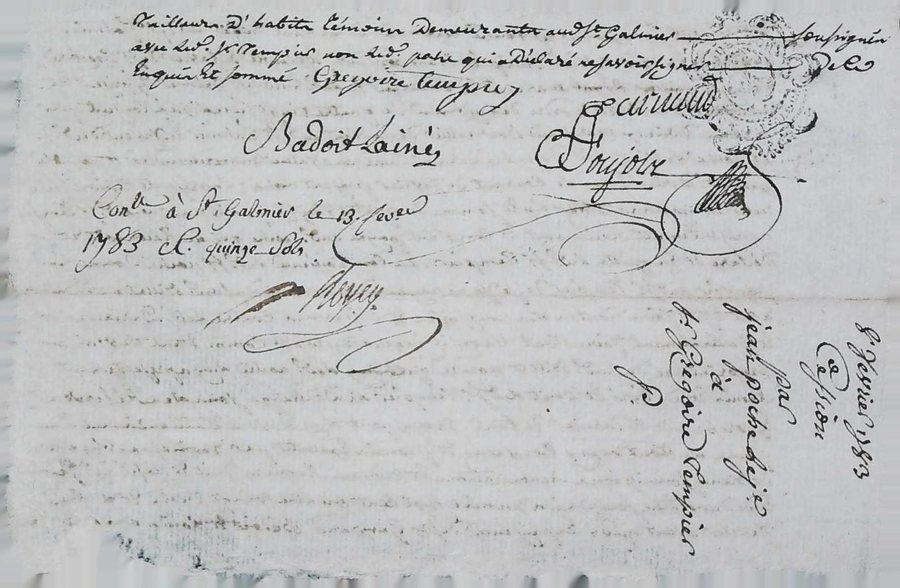 Tailleurs D'habits témoins Demeurants aud. St Galmier soussignés
avec led. Sr Tempier non led. qui a Déclaré ne savoir signer de ce
Enquis Et sommé Gregoire tempier
Badoit Lainé
Con.lé à St. Galmier le 13. fever
1783 R. quinze Sols
8e Janvier 1783
Cession
par
jean poche
à
Sr Gregoire Tempier